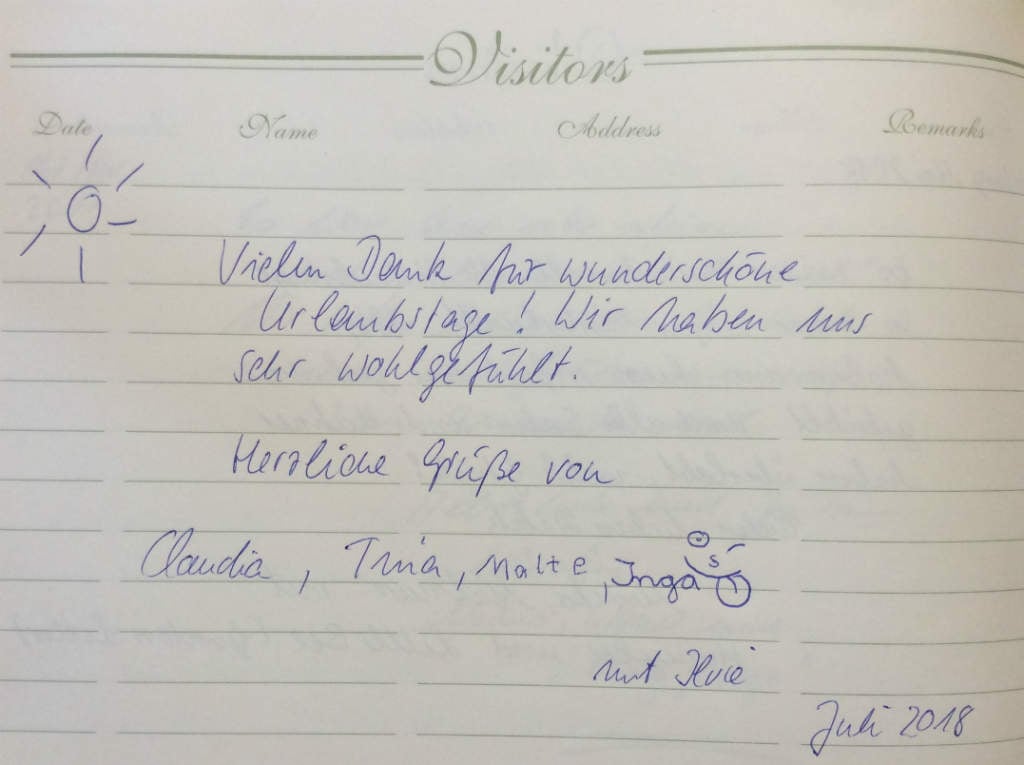 Visitors
Date Name Address Remarks
Vielen Dank für wunderschöne
Urlaubstage! Wir haben uns
sehr wohlgefühlt.
Herzliche Grüße von
Claudia, Tina, Malte, Inga
mit
Juli 2018